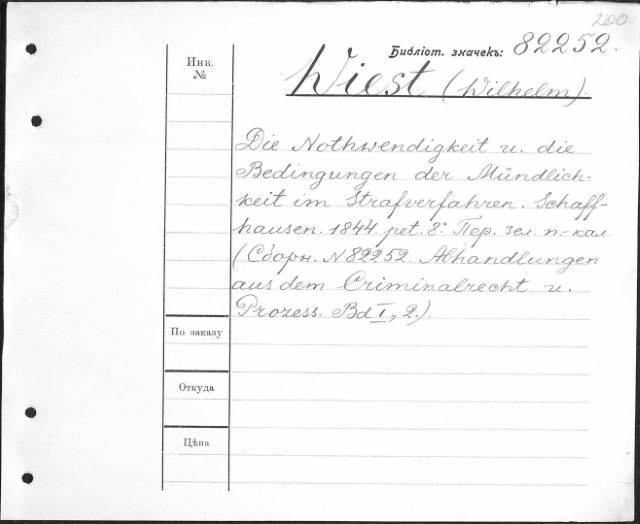 200
Библіот. значекъ: 82252.
Инв.
№
Wiest (Wilhelm).
Die Nothwendigkeit u. die
Bedingungen der Mündlich-
keit im Strafverfahren. Schaff-
hausen. 1844. pet. 8º. Пер. зел. п.-кал.
(Сборн. N 82252. Abhandlungen
aus dem Criminalrecht u.
Prozess. Bd I, 2.).
По заказу
Откуда
Цѣна